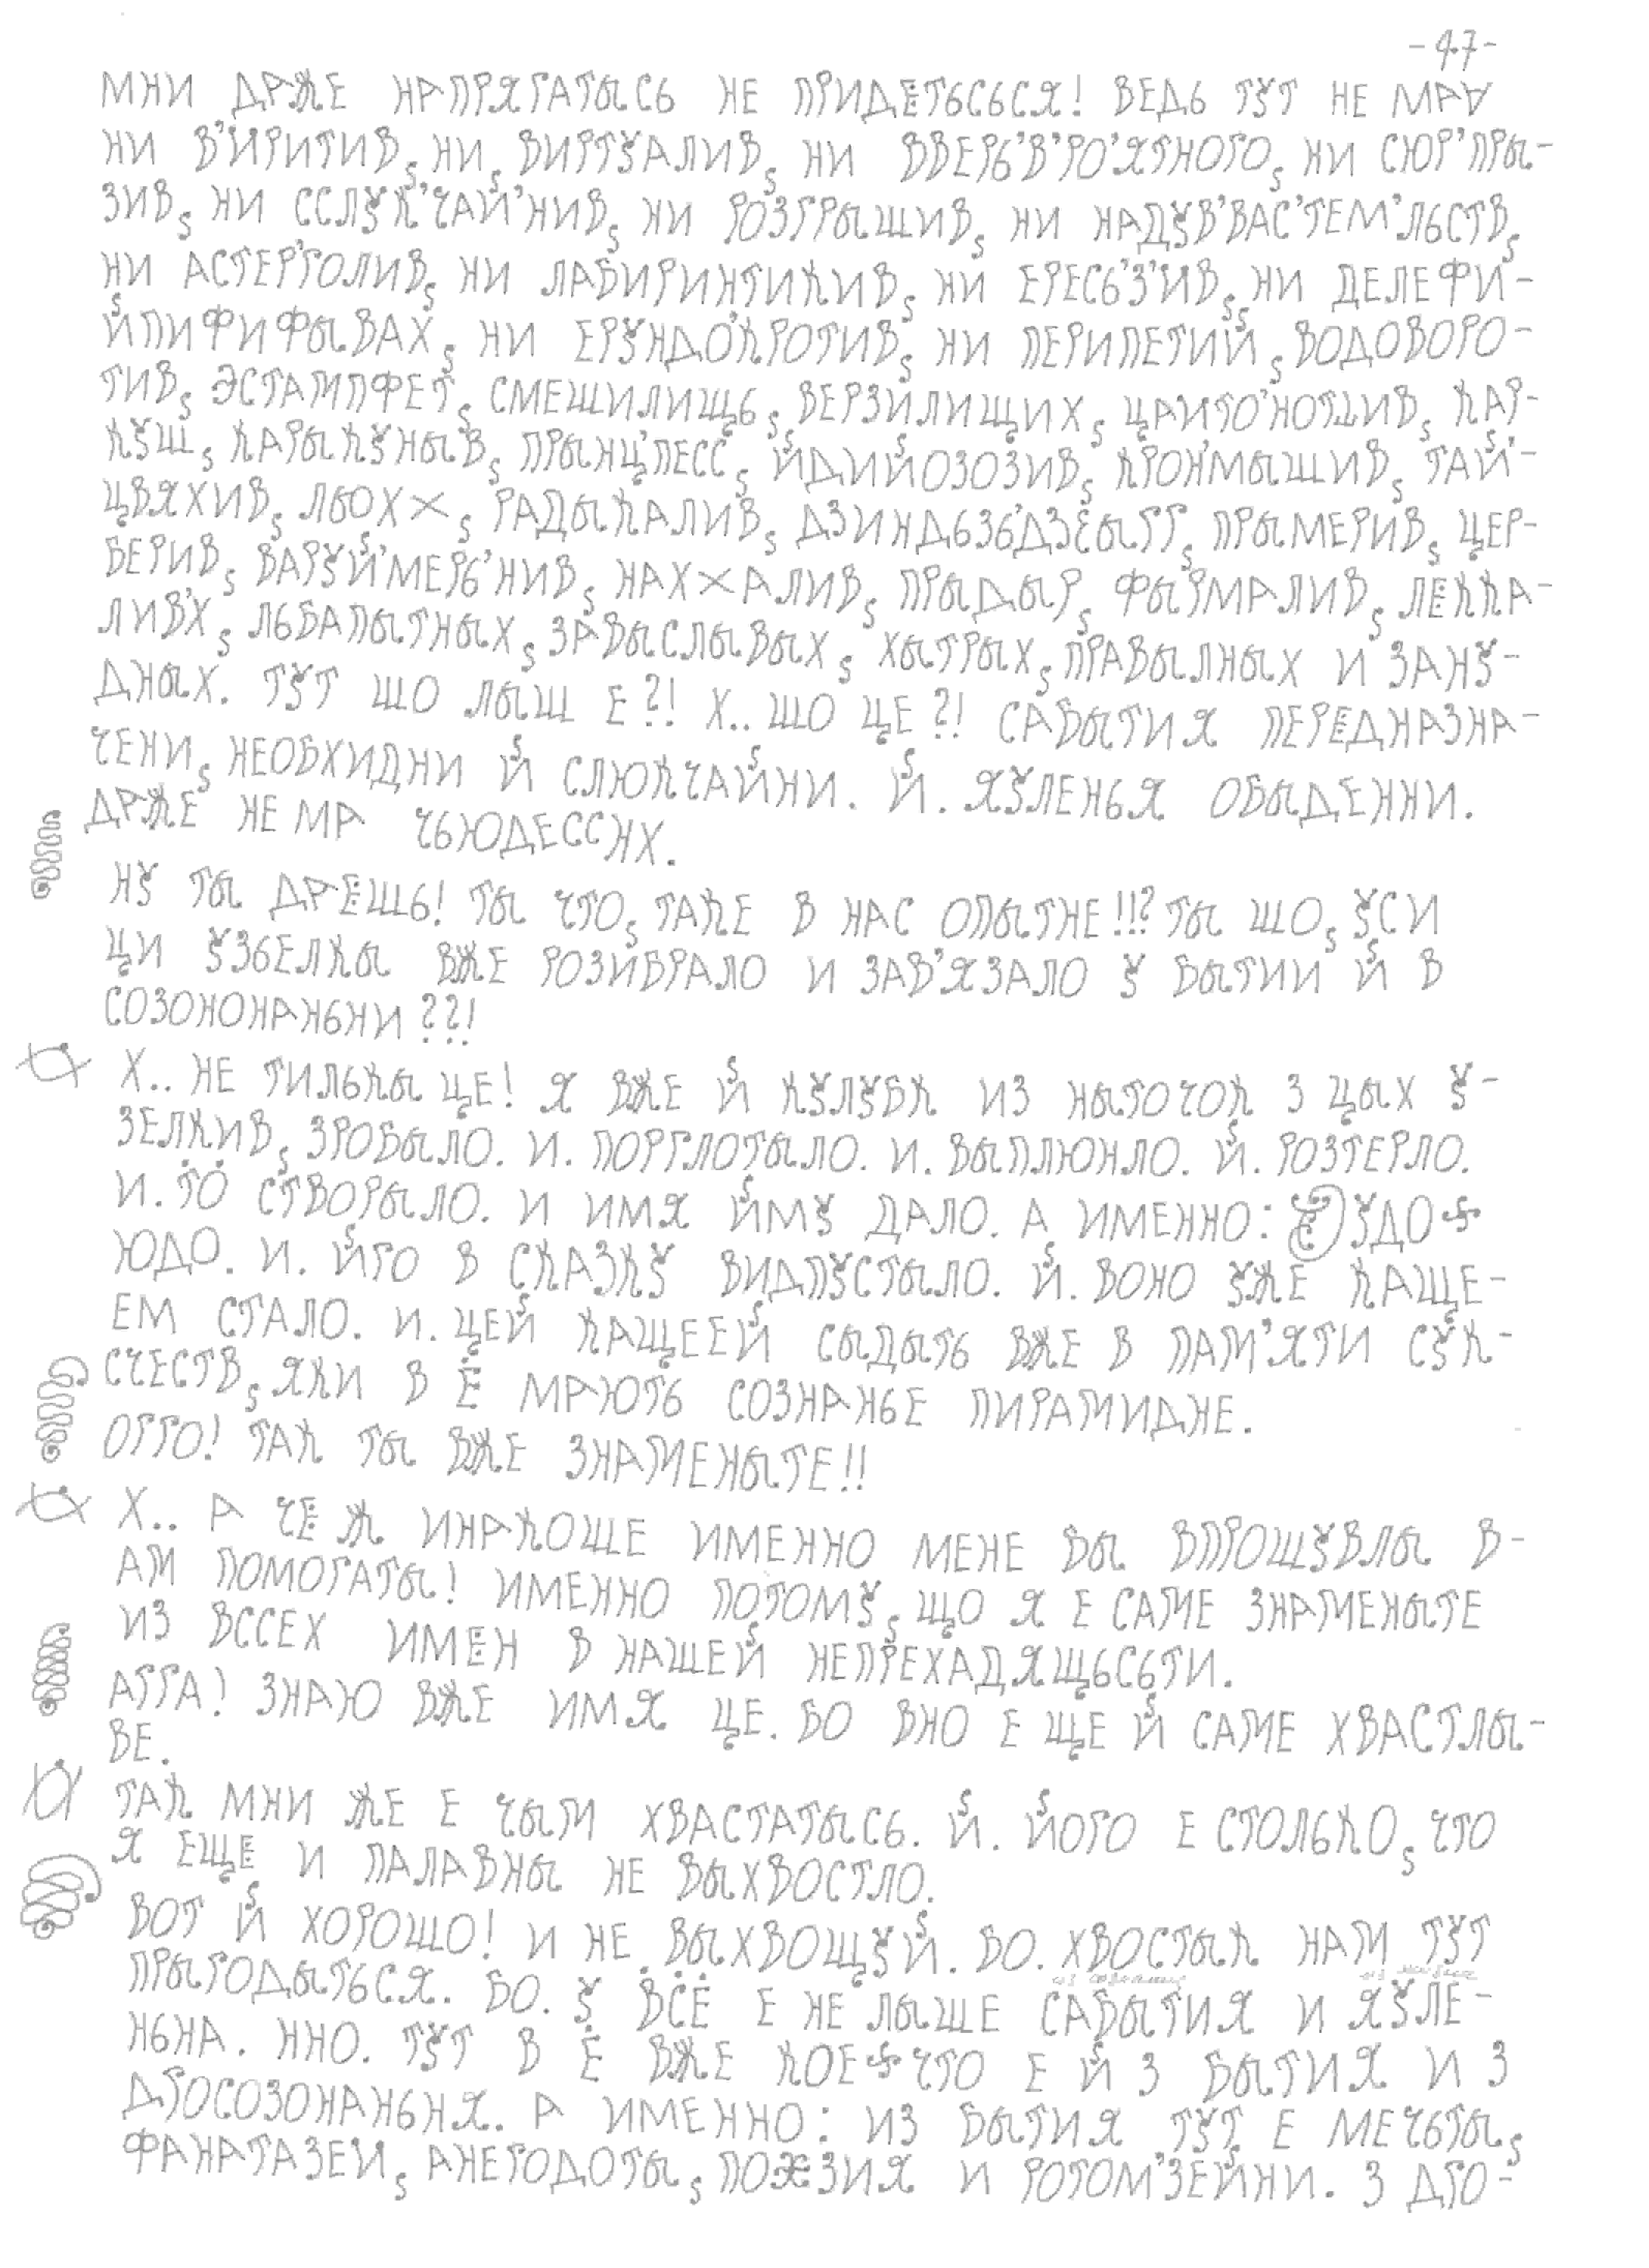 -47-
МНИ ДРЖЕ НАПРЯГАТЫСЬ НЕ ПРИДЕТЬСЬСЯ! ВЕДЬ ТУТ НЕ МАА
НИ В'ИРИТИВ, НИ, ВИРТУАЛИВ, НИ ВВЕРЬ'В'РО'ЯТНОГО, НИ СЮР'ПРЫ-
ЗИВ, НИ ССЛУК'ЧАЙ'НИВ, НИ РОЗГРЫШИВ, НИ НАДУВ'ВАС'ТЕМ'ЛЬСТВ,
НИ АСТЕР'ГОЛИВ, НИ ЛАБИРИНТИКИВ, НИ ЕРЕСЬ'З'ИВ, НИ ДЕЛЕФИ-
ЙПИФИФЫВАХ, НИ ЕРУНДО'КРОТИВ, НИ ПЕРИПЕТИЙ, ВОДОВОРО-
ТИВ, ЭСТАМПФЕТ, СМЕШИЛИЩЬ, ВЕРЗИЛИЩИХ, ЦАИТО'НОТШИВ, КАР-
КУШ, КАРЫКУНЫВ, ПРЫНЦ'ПЕСС, ЙДИЙОЗОЗИВ, КРОН'МЫШИВ, ТАЙ'-
ЦВЯХИВ, ЛЬОХХ, РАДЫКАЛИВ, ДЗИНДЬЗЬ'ДЗЁЫГГ, ПРЫМЕРИВ, ЦЕР-
БЕРИВ, ВАРУЙ'МЕРЬ'НИВ, НАХХАЛИВ, ПРЫДЫР, ФЫРМАЛИВ, ЛЁККА-
ЛИВ'Х, ЛЬБАПЫТНЫХ, ЗАВЫСЛЫВЫХ, ХЫТРЫХ, ПРАВЫЛНЫХ И ЗАНУ-
ДНЫХ. ТУТ ШО ЛЫШ Е?! Х.. ШО ЦЕ?! САБЫТИЯ ПЕРЕДНАЗНА-
ЧЕНИ, НЕОБХИДНИ Й СЛЮКЧАЙНИ. Й. ЯУЛЕНЬЯ ОБЫДЕННИ.
ДРЖЕ НЕ МА ЧЬЮДЕССНХ.
НУ ТЫ ДРЁШЬ! ТЫ ЧТО, ТАКЕ В НАС ОПЫТНЕ!!? ТЫ ШО, УСИ
ЦИ УЗЬЕЛКЫ ВЖЕ РОЗИБРАЛО И ЗАВ'ЯЗАЛО У БЫТИИ Й В
СОЗОНОНАНЬНИ??!
Х.. НЕ ТИЛЬКЫ ЦЕ! Я ВЖЕ Й КУЛУБК ИЗ НЫТОЧОК З ЦЫХ У-
ЗЕЛКИВ, ЗРОБЫЛО. И. ПОРГЛОТЫЛО. И. ВЫПЛЮНЛО. Й. РОЗТЕРЛО.
И. ТО СТВОРЫЛО. И ИМЯ ЙМУ ДАЛО. А ИМЕННО: УДО
ЮДО. И. ЙГО В СКАЗКУ ВИДПУСТЫЛО. Й. ВОНО УЖЕ КАЩЕ-
ЕМ СТАЛО. И. ЦЕЙ КАЩЕЕЙ СЫДЫТЬ ВЖЕ В ПАМ'ЯТИ СУК-
СЧЕСТВ, ЯКИ В Ё МАЮТЬ СОЗНАНЬЕ ПИРАМИДНЕ.
ОГГО! ТАК ТЫ ВЖЕ ЗНАМЕНЫТЕ!!
Х.. А ЧЁ Ж ИНАКОШЕ ИМЕННО МЕНЕ ВЫ ВПРОШУВЛЫ В-
АМ ПОМОГАТЫ! ИМЕННО ПОТОМУ, ЩО Я Е САМЕ ЗНАМЕНЫТЕ
ИЗ ВССЕХ ИМЁН В НАШЕЙ НЕПРЕХАДЯЩЬСЬТИ.
АГГА! ЗНАЮ ВЖЕ ИМЯ ЦЕ. БО ВНО Е ЩЕ Й САМЕ ХВАСТЛЫ-
ВЕ.
ТАК МНИ ЖЕ Е ЧЫМ ХВАСТАТЫСЬ. Й. ЙОГО Е СТОЛЬКО, ЧТО
Я ЕЩЕ И ПАЛАВНЫ НЕ ВЫХВОСТЛО.
ВОТ Й ХОРОШО! И НЕ ВЫХВОЩУЙ. БО. ХВОСТЫК НАМ ТУТ
ПРЫГОДЫТЬСЯ. БО. У ВСЁ Е НЕ ЛЫШЕ САБЫТИЯ И ЯУЛЕ-
НЬНА. ННО. ТУТ В Ё ВЖЕ КОЕ ЧТО Е Й З БЫТИЯ И З
ДГОСОЗОНАНЬНЯ. А ИМЕННО: ИЗ БЫТИЯ ТУТ Е МЕЧЬТЫ,
ФАНАТАЗЕИ, АНЕГОДОТЫ, ПОЖЗИЯ И РОТОМ'ЗЕЙНИ. З ДГО-